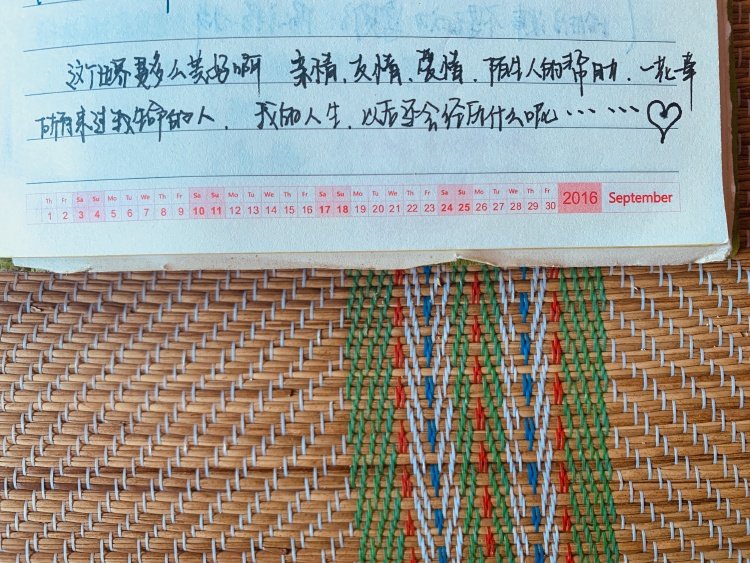 这个世界是多么美好啊 亲情、友情、爱情、陌生人的帮助、
所有来过我生命的人、我的人生、以后还会经历什么呢……
Th Fr Sa Su Mo Tu We Th Fr Sa Su Mo Tu We Th Fr Sa Su Mo Tu We Th Fr Sa Su Mo Tu We Th Fr
1 2 3 4 5 6 7 8 9 10 11 12 13 14 15 16 17 18 19 20 21 22 23 24 25 26 27 28 29 30 2016 September